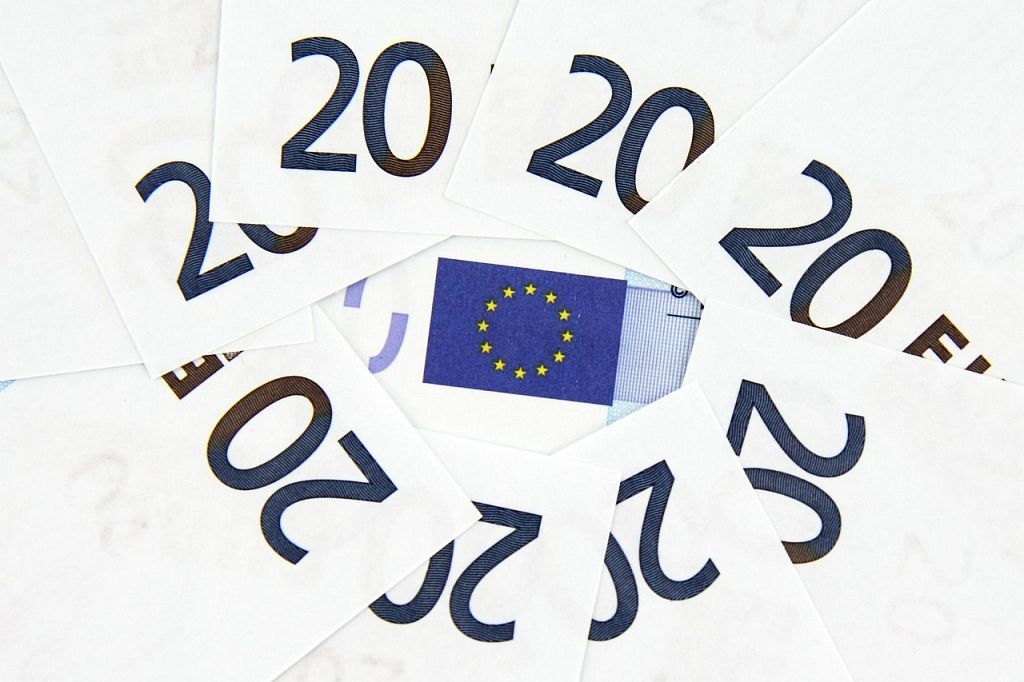 20
20
20
20
©
E
E
20
20
20
20